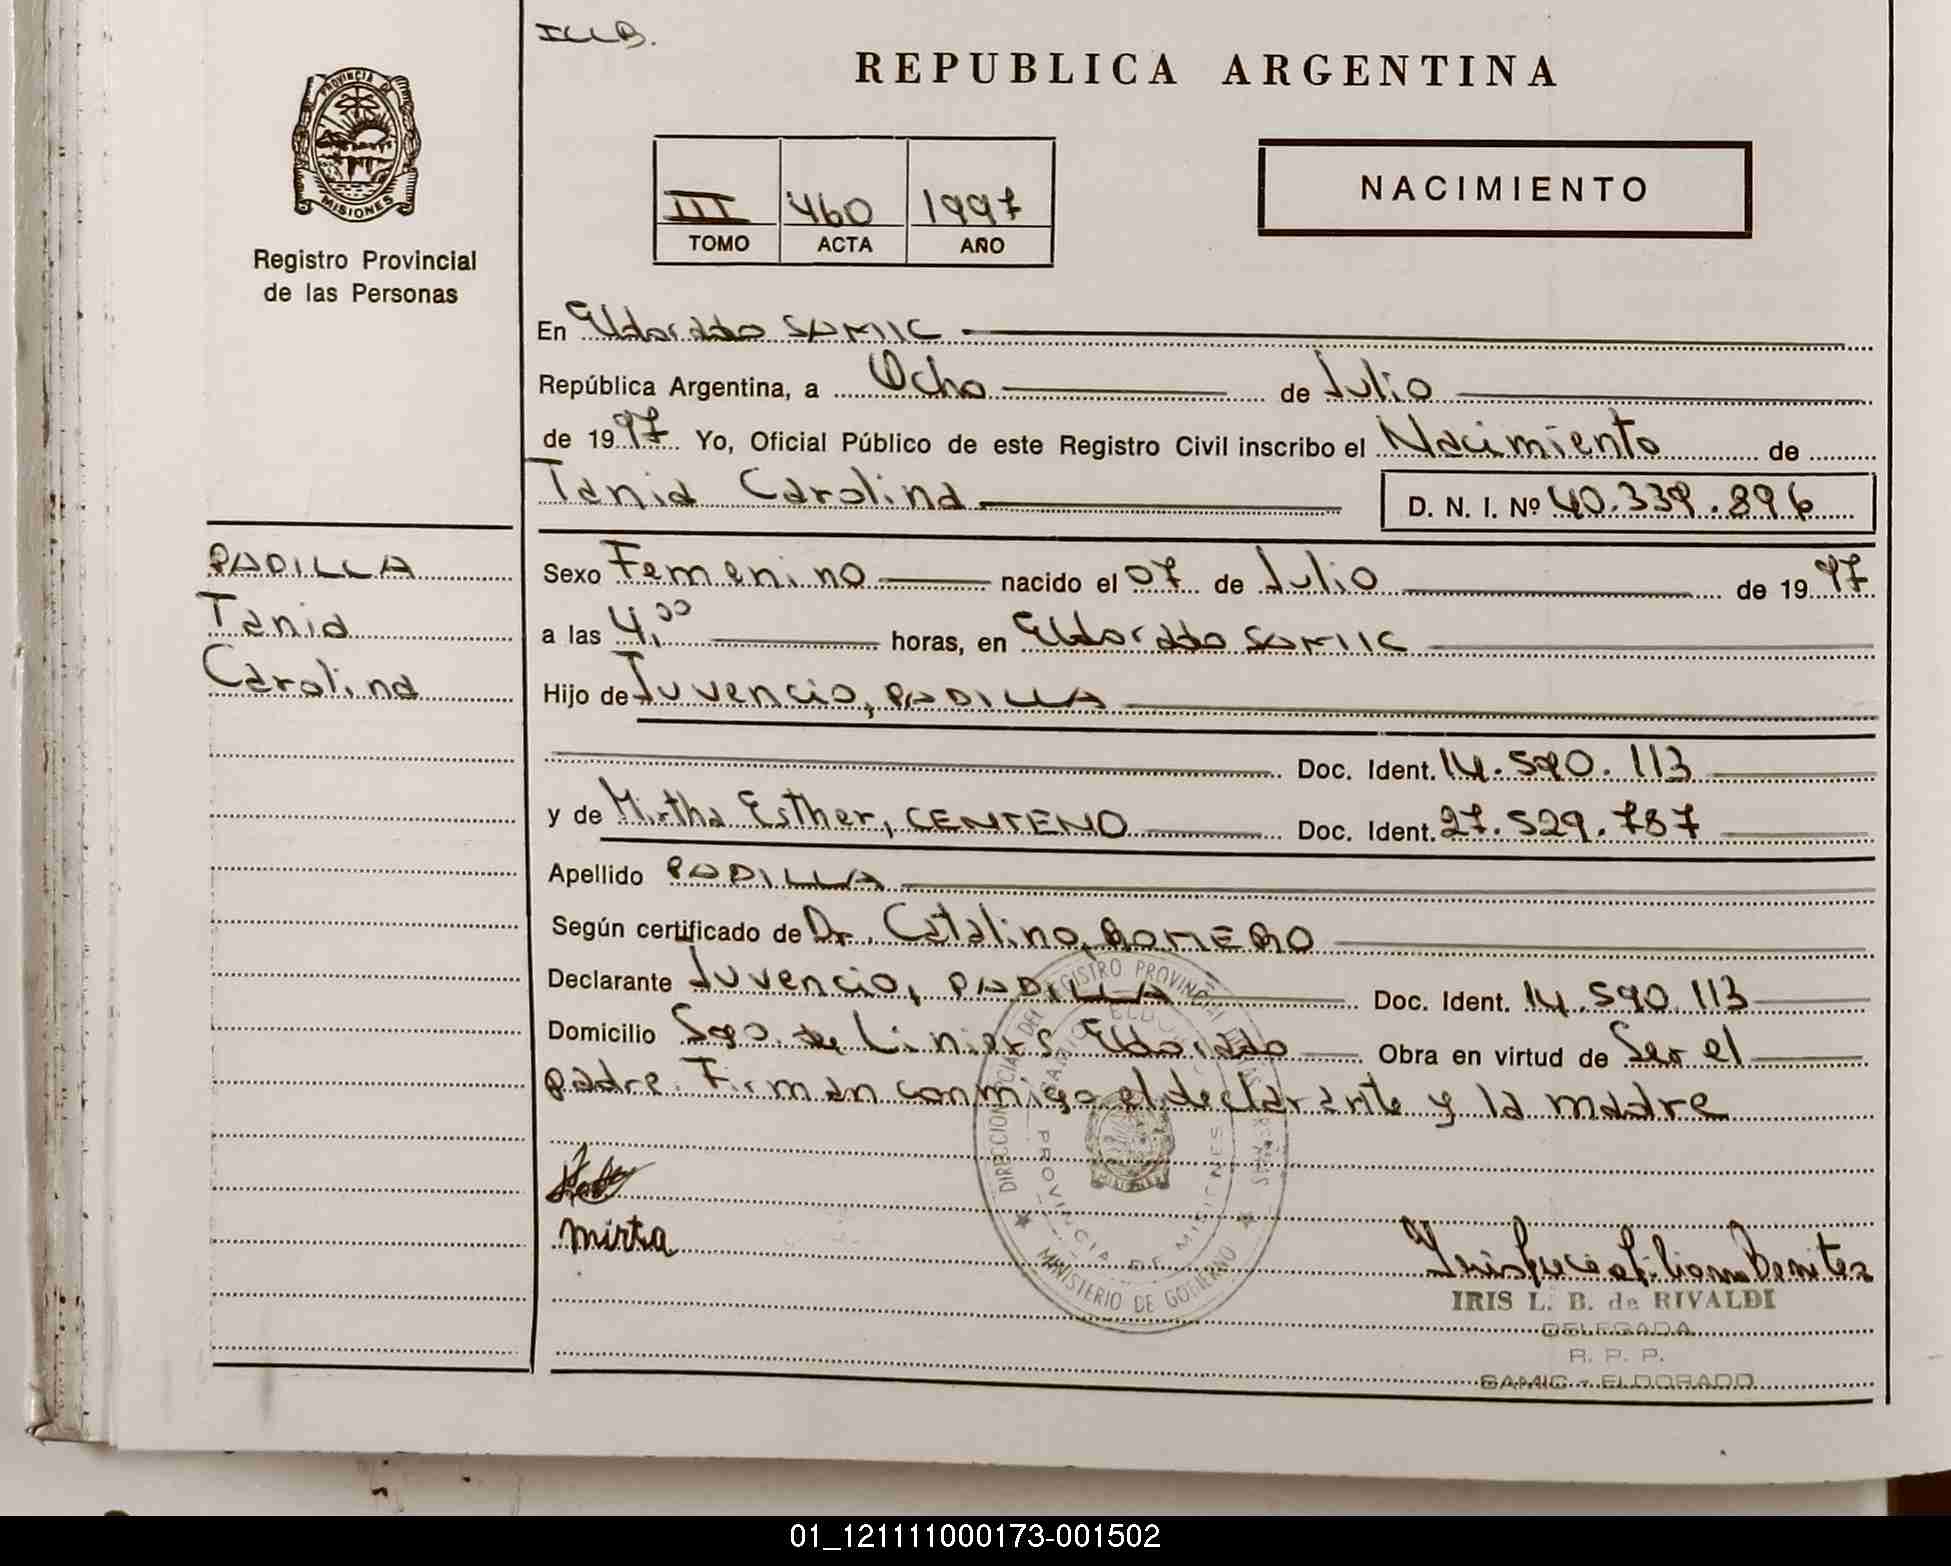 ILLB.
REPUBLICA ARGENTINA
PROVINCIA DE
MISIONES
Registro Provincial
de las Personas
III 460 1997
TOMO ACTA AÑO
NACIMIENTO
En Eldorado SAMIC
República Argentina, a Ocho de Julio
de 1997 Yo, Oficial Público de este Registro Civil inscribo el Nacimiento de
Tania Carolina
D. N. I. Nº 40.339.896
PADILLA
Tania
Carolina
Sexo Femenino nacido el 07 de Julio de 1997
a las 4,00 horas, en Eldorado SAMIC
Hijo de Juvencio, PADILLA
Doc. Ident. 14.590.113
y de Mirtha Esther, CENTENO Doc. Ident. 27.529.787
Apellido PADILLA
Según certificado de Dr. Catalino, ROMERO
Declarante Juvencio, PADILLA Doc. Ident. 14.590.113
Domicilio Sgo. de Liniers Eldorado Obra en virtud de Ser el
padre. Firman conmigo el declarante y la madre
mirta
DIRECCION PROVINCIAL DEL REGISTRO PROVINCIAL DE LAS PERSONAS
MINISTERIO DE GOBIERNO
PROVINCIA DE MISIONES
MISIONES
Benitez
IRIS L. B. de RIVALDI
DELEGADA
R. P. P.
SAMIC - ELDORADO
01_121111000173-001502